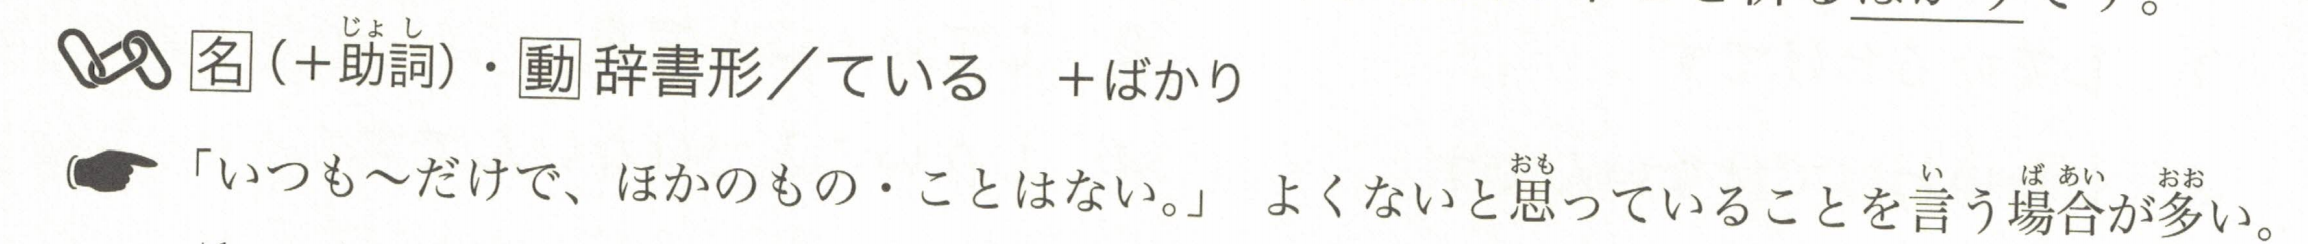 です。
名(＋助詞)・動辞書形／ている　＋ばかり
「いつも～だけで、ほかのもの・ことはない。」 よくないと思っていることを言う場合が多い。